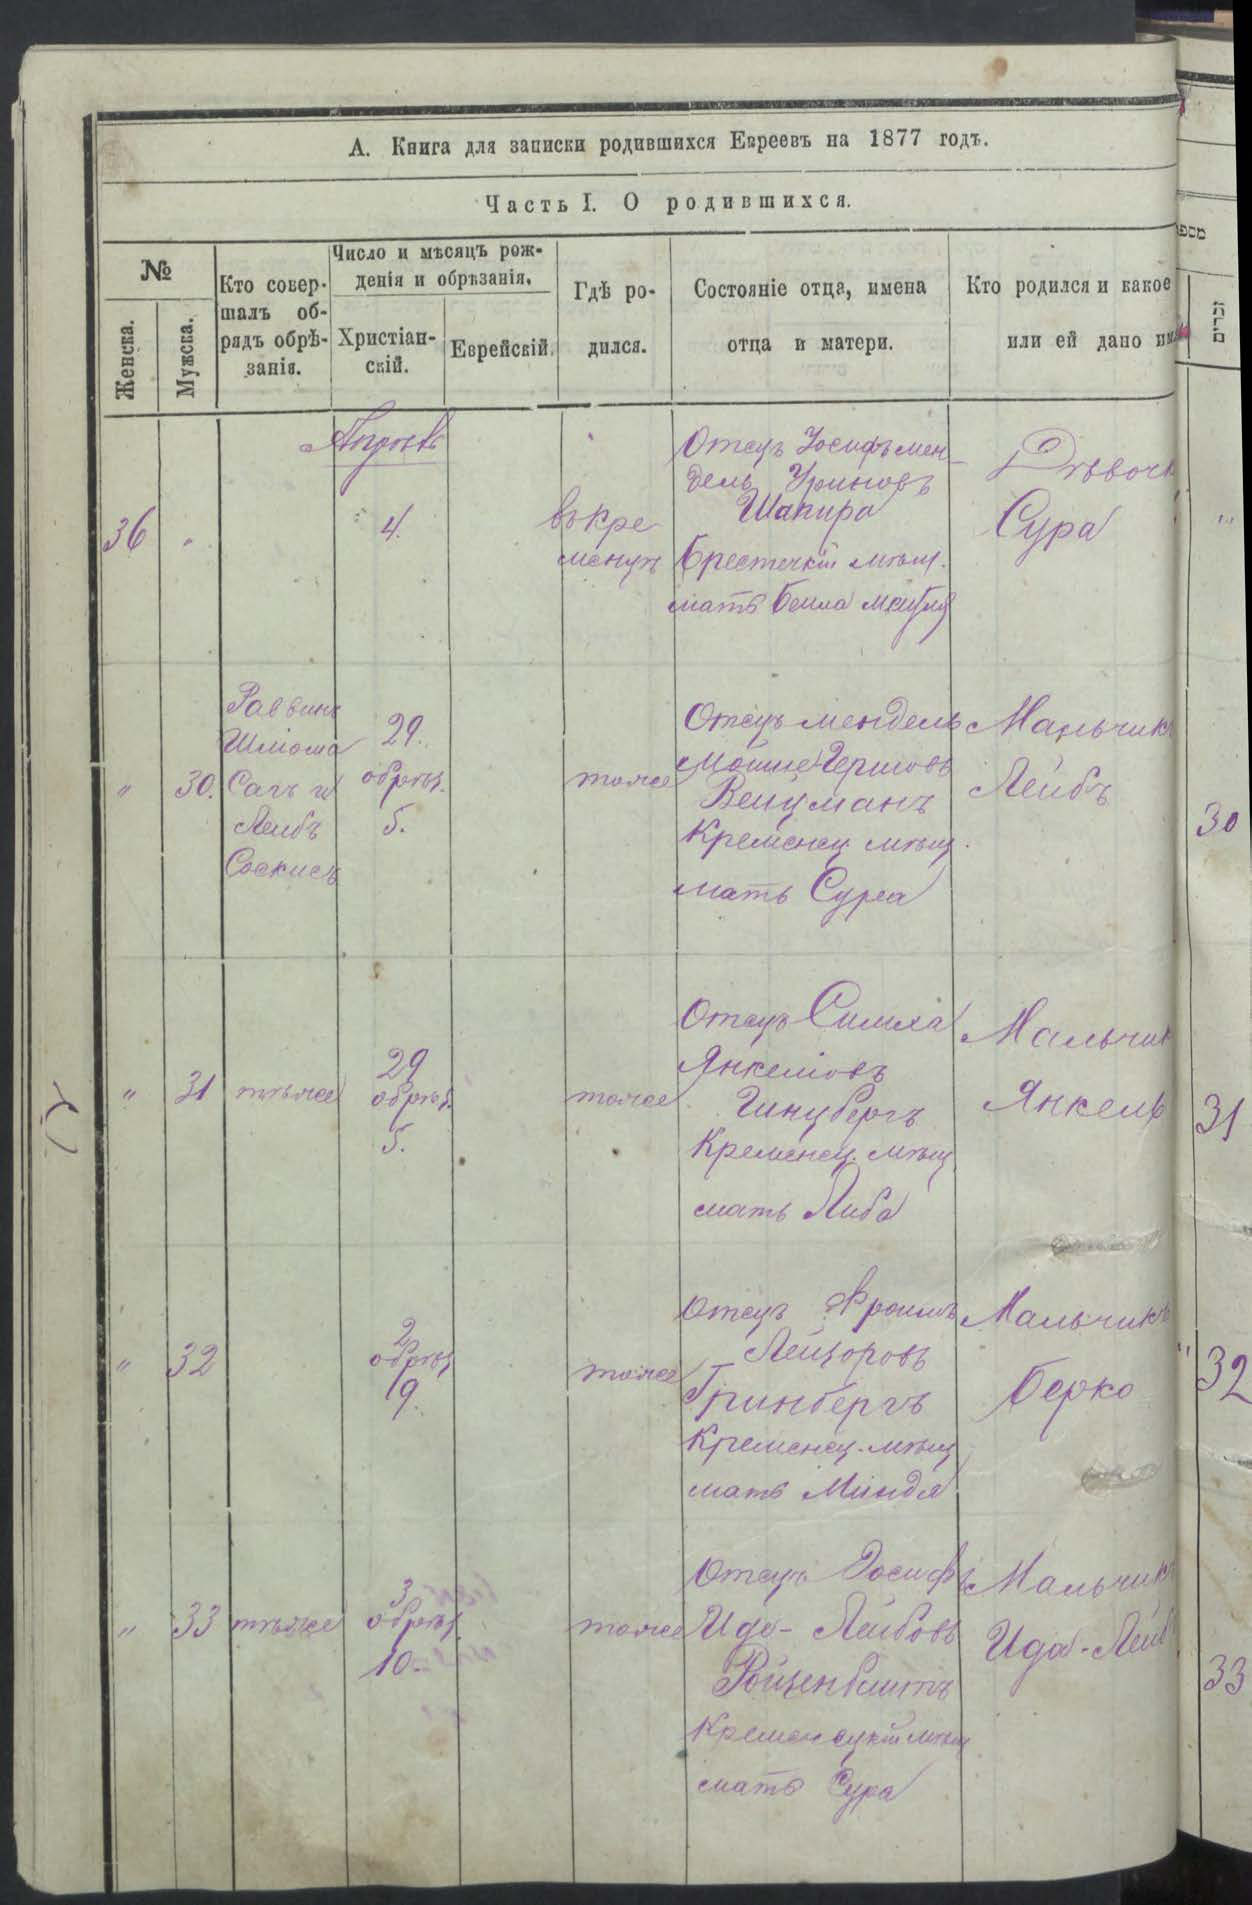 А. Книга для записки родившихся Евреевъ на 1877 годъ.
Часть I. О родившихся.
№
Женска.
Мужска.
Кто совер-
шалъ об-
рядъ обрѣ-
занія.
Число и мѣсяцъ рож-
денія и обрѣзанія.
Христіан-
скій.
Еврейскій.
Гдѣ ро-
дился.
Состояніе отца, имена
отца и матери.
Кто родился и какое
или ей дано им
מספ
זכרים
Апрѣль
36
"
4.
въ Кре
менцѣ
Отецъ Іосифъ Мен-
дель
Шапира
Берестечкій мѣщ.
мать Бейла
Дѣвочк
Сура
"
30.
Раввинъ
Шлиома
Сатъ и
Лейбъ
29.
обрѣз.
5.
тоже
Отецъ Мендель
Мошке Гершовъ
Вейцманъ
Кременец. мѣщ.
мать Сура
Мальчикъ
Лейбъ
30
"
31
тѣже
29
обрѣз.
5.
тоже
Отецъ Симха
Янкелiовъ
Гинцбергъ
Кременец. мѣщ.
мать Либа
Мальчик
Янкель
31
"
32
2
обрѣз.
9.
тоже
Отецъ Фроимъ
Лейзоровъ
Гринбергъ
Кременец. мѣщ.
мать Миндя
Мальчикъ
Берко
"
32
"
33
тѣже
3
обрѣз.
10.
тоже
Отецъ Іосифъ
Ида-Лейбовъ
Кременецкій мѣщ
мать Сура
Мальчикъ
Ида-Лейб
33